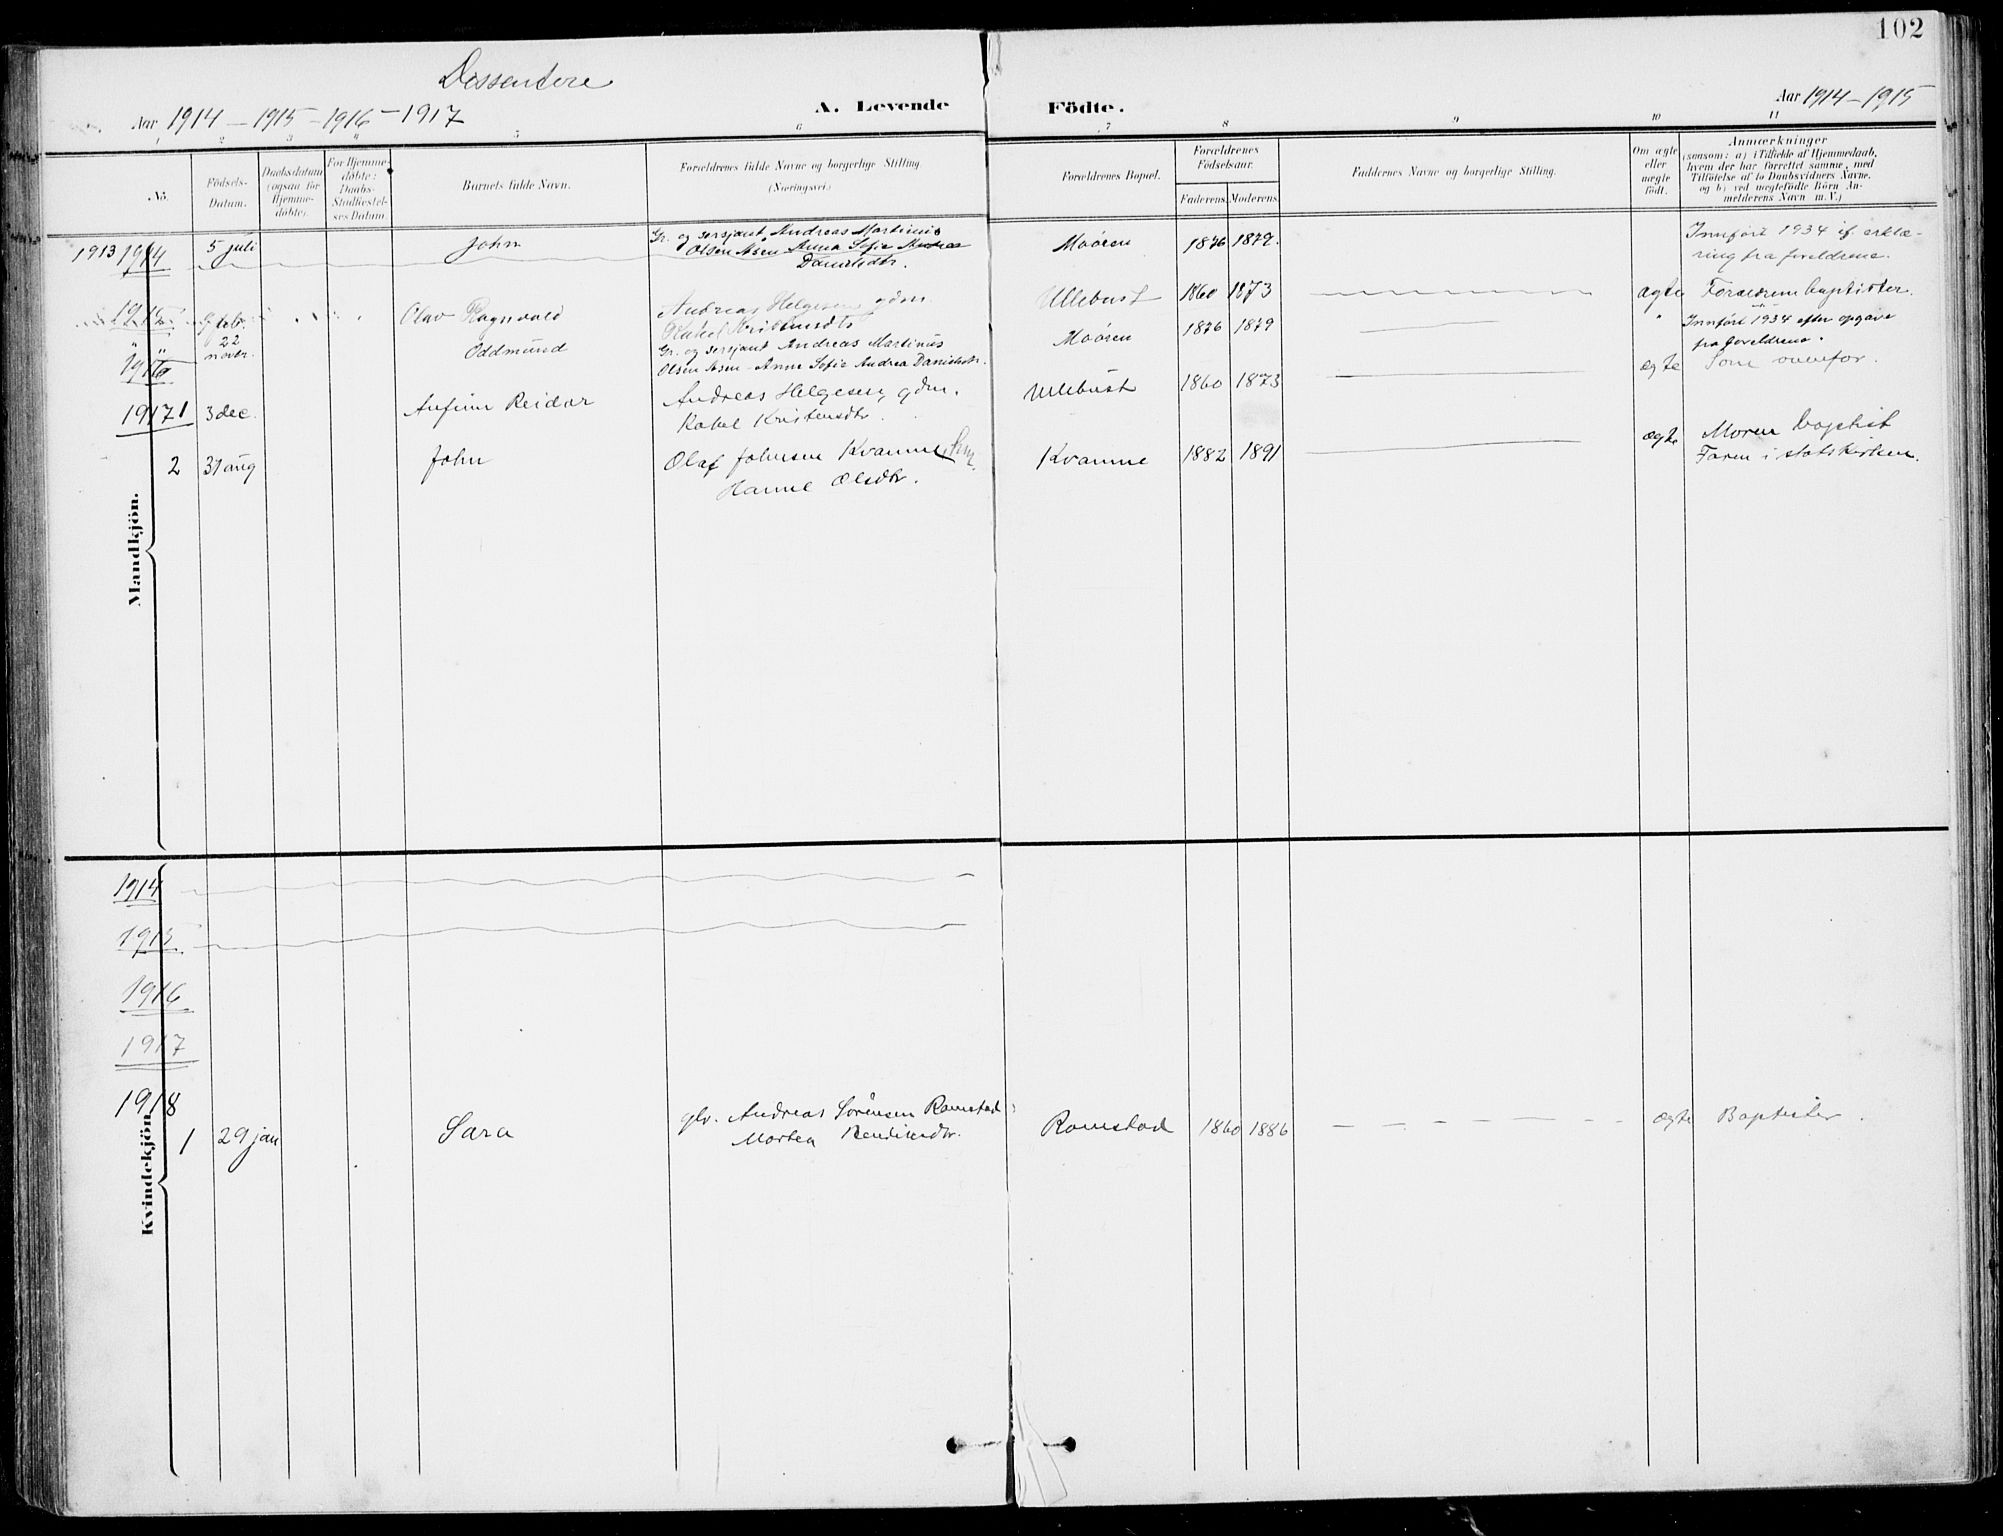 102
Dissentere
Aar 1914 – 1915 – 1916 – 1917
A. Levende Födte.
Aar 1914 – 1915
1 2 3 4 5 6 7 8 9 10 11
No. Födsels-Datum. Daabsdatum (ogsaa for Hjemme-döbte). For Hjemme-döbte: Daabs-Stadfæstel-ses Datum. Barnets fulde Navn. Forældrenes fulde Navne og borgerlige Stilling. (Næringsvei.) Forældrenes Bopæl. Forældrenes Födselsaar. Faderens. Moderens. Faddernes Navne og borgerlige Stilling. Om ægte eller uægte födt. Anmærkninger (saasom: a) i Tilfælde af Hjemmedaab, hvem der har forrettet samme, med Tilföielse af to Daabsvidners Navne, og b) ved uægtefödte Börn An-melderens Navn m. V.)
1913 5 juli John Gr. og sersjant Andreas Martinius Maören 1876 1879. Innført 1934 if. erklæ-
1914 Olsen Aasen Anna Sofie Andrea ring fra foreldrene.
Danielsdtr.
1915 9 febr. Olav Ragnvald Andreas Helgesen gdm. Ullebust 1860 1873 ægte Forældrene baptister.
Rakel Kristensdtr
" " 22 nover. Oddmund Gr. og sersjant Andreas Martinus Maören 1876 1879 " Innført 1934 efter opgave
1916 Olsen Aasen – Anne Sofie Andrea Danielsdtr. fra foreldrene.
1917 1 3 dec. Anfinn Reidar Andreas Helgesen, gdm. Ullebust 1860 1873 ægte Som ovenfor.
Rakel Kristensdtr.
2 31 aug John Olaf Johnsen Kvamme Kvamme 1882 1891 ægte Moren baptist
Hanne Olsdtr. Faren i statskirken.
Mandkjön.
1914
1915
1916
1917
1918
1 29 jan Sara glv. Andreas Sörensen Ramstad Ramstad 1860 1886 ægte Baptister.
Martea Bendiksdtr.
Kvindekjön.